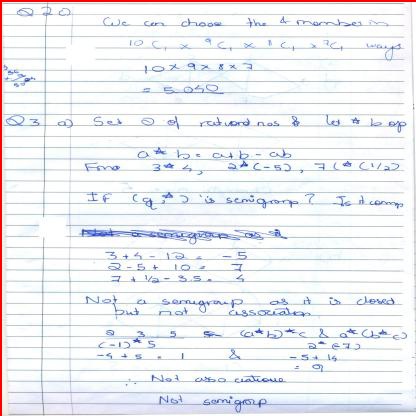 Q 20
We can choose the 4 members in
10 C1 x 9C1 x 8 C1 x 7C1 ways
10 x 9 x 8 x 7
= 5040
Q3 a) Set Q of rational nos & let * b op
a * b = a+b - ab
Find 3 * 4, 2 * (-5), 7 * (1/2)
If (Q, *) is semigroup? Is it comm
3 + 4 - 12 = -5
2 - 5 + 10 = 7
7 + 1/2 - 3.5 = 4
Not a semigroup as it is closed
but not associative
2 3 5 (a*b)*c & a*(b*c)
(-1) * 5 2 * (-7)
-4 + 5 = 1 & -5 + 14
= 9
∴ Not associative
Not semigroup